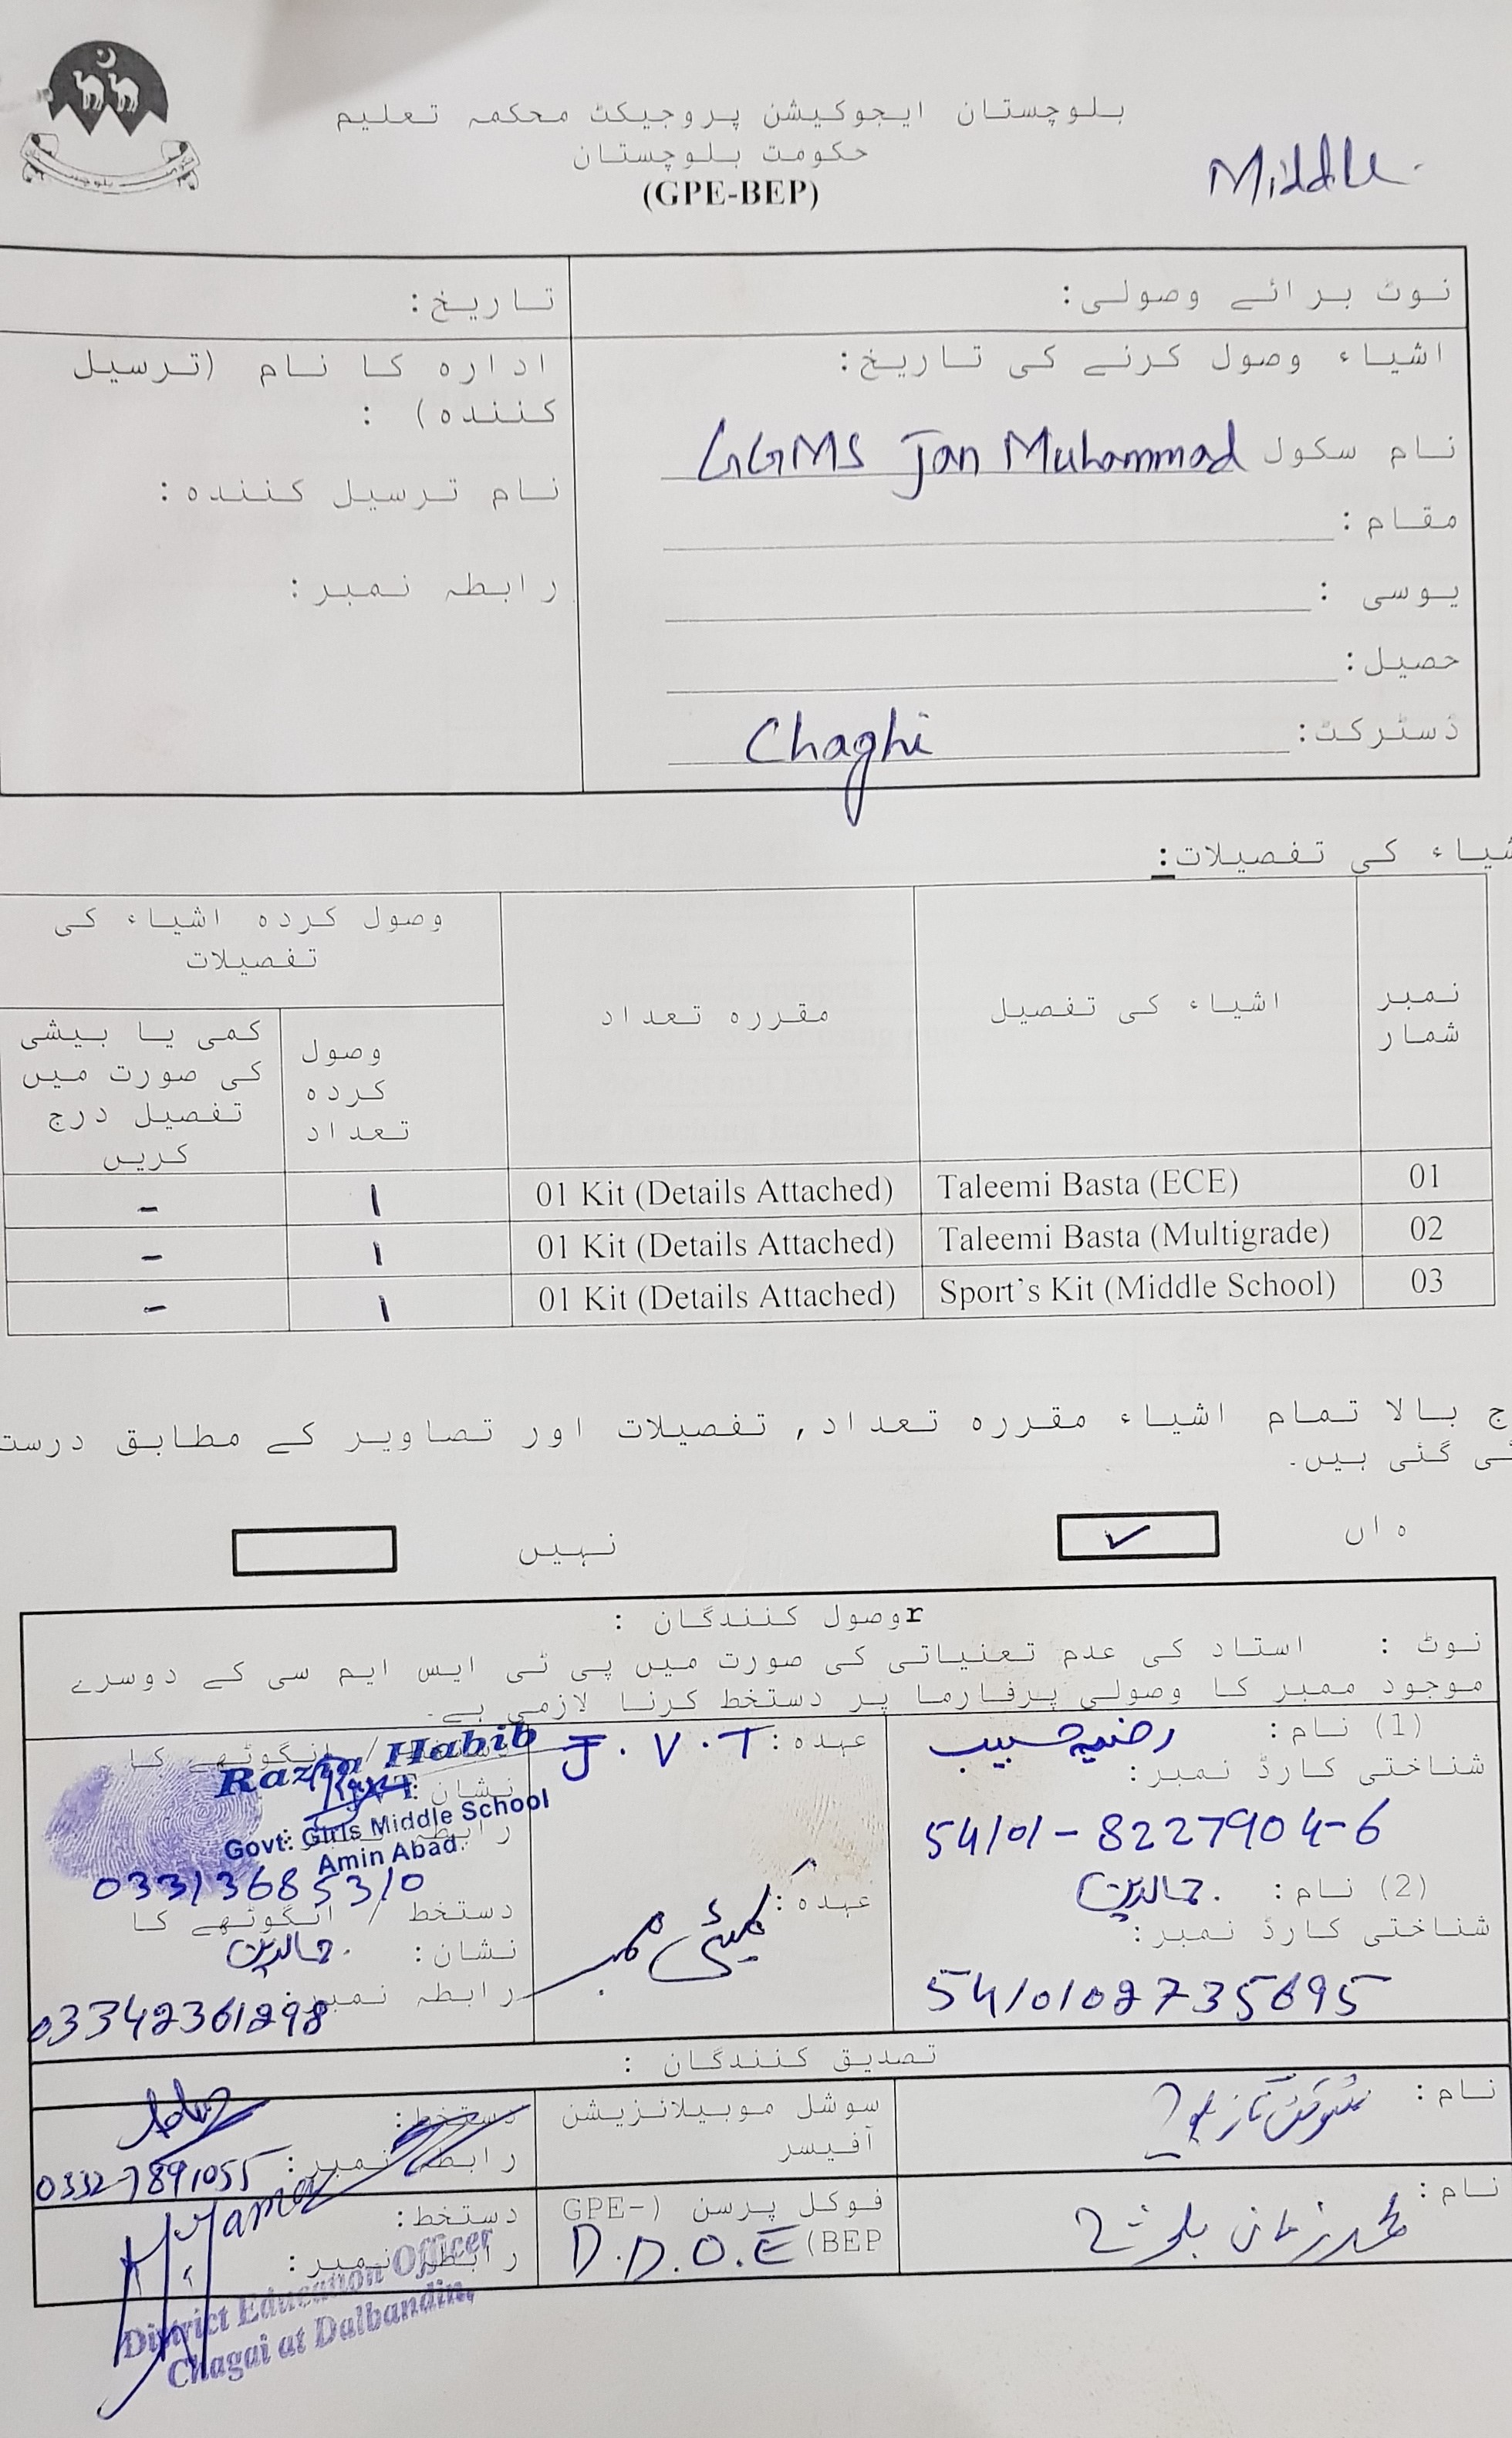 بلوچستان ایجوکیشن پروجیکٹ محکمہ تعلیم
حکومت بلوچستان
(GPE-BEP)
Middle.
نوٹ برائے وصولی:
تاریخ:
اشیاء وصول کرنے کی تاریخ:
نام سکول GGMS Jan Muhammad
مقام:
یوسی :
حصیل:
ڈسٹرکٹ: Chaghi
ادارہ کا نام (ترسیل
کنندہ) :
نام ترسیل کنندہ:
رابطہ نمبر:
شیاء کی تفصیلات:
نمبر شمار
اشیاء کی تفصیل
مقررہ تعداد
وصول کردہ اشیاء کی
تفصیلات
وصول
کردہ
تعداد
کمی یا بیشی
کی صورت میں
تفصیل درج
کریں
01 Taleemi Basta (ECE) 01 Kit (Details Attached) 1 -
02 Taleemi Basta (Multigrade) 01 Kit (Details Attached) 1 -
03 Sport's Kit (Middle School) 01 Kit (Details Attached) 1 -
ج بالا تمام اشیاء مقررہ تعداد, تفصیلات اور تصاویر کے مطابق درست
ئی گئی ہیں۔
ہاں ✓
نہیں
rوصول کنندگان :
نوٹ : استاد کی عدم تعنیاتی کی صورت میں پی ٹی ایس ایم سی کے دوسرے
موجود ممبر کا وصولی پرفارما پر دستخط کرنا لازمی ہے۔
(1) نام: رضیہ حبیب
شناختی کارڈ نمبر:
54101-8227904-6
(2) نام:
شناختی کارڈ نمبر:
5410102735695
عہدہ: J.V.T
عہدہ: کمیٹی ممبر
انگوٹھے کا
نشان:
Razia Habib
JVT
Govt: Girls Middle School
Amin Abad.
03313685310
دستخط / انگوٹھے کا
نشان:
رابطہ نمبر:
03342361298
تصدیق کنندگان :
نام:
سوشل موبیلائزیشن
آفیسر
دستخط:
رابطہ نمبر: 03327891055
نام: محمد زمان بلوچ
فوکل پرسن (GPE-
BEP) D.D.O.E
دستخط:
رابطہ نمبر:
District Education Officer
Chagai at Dalbandin.